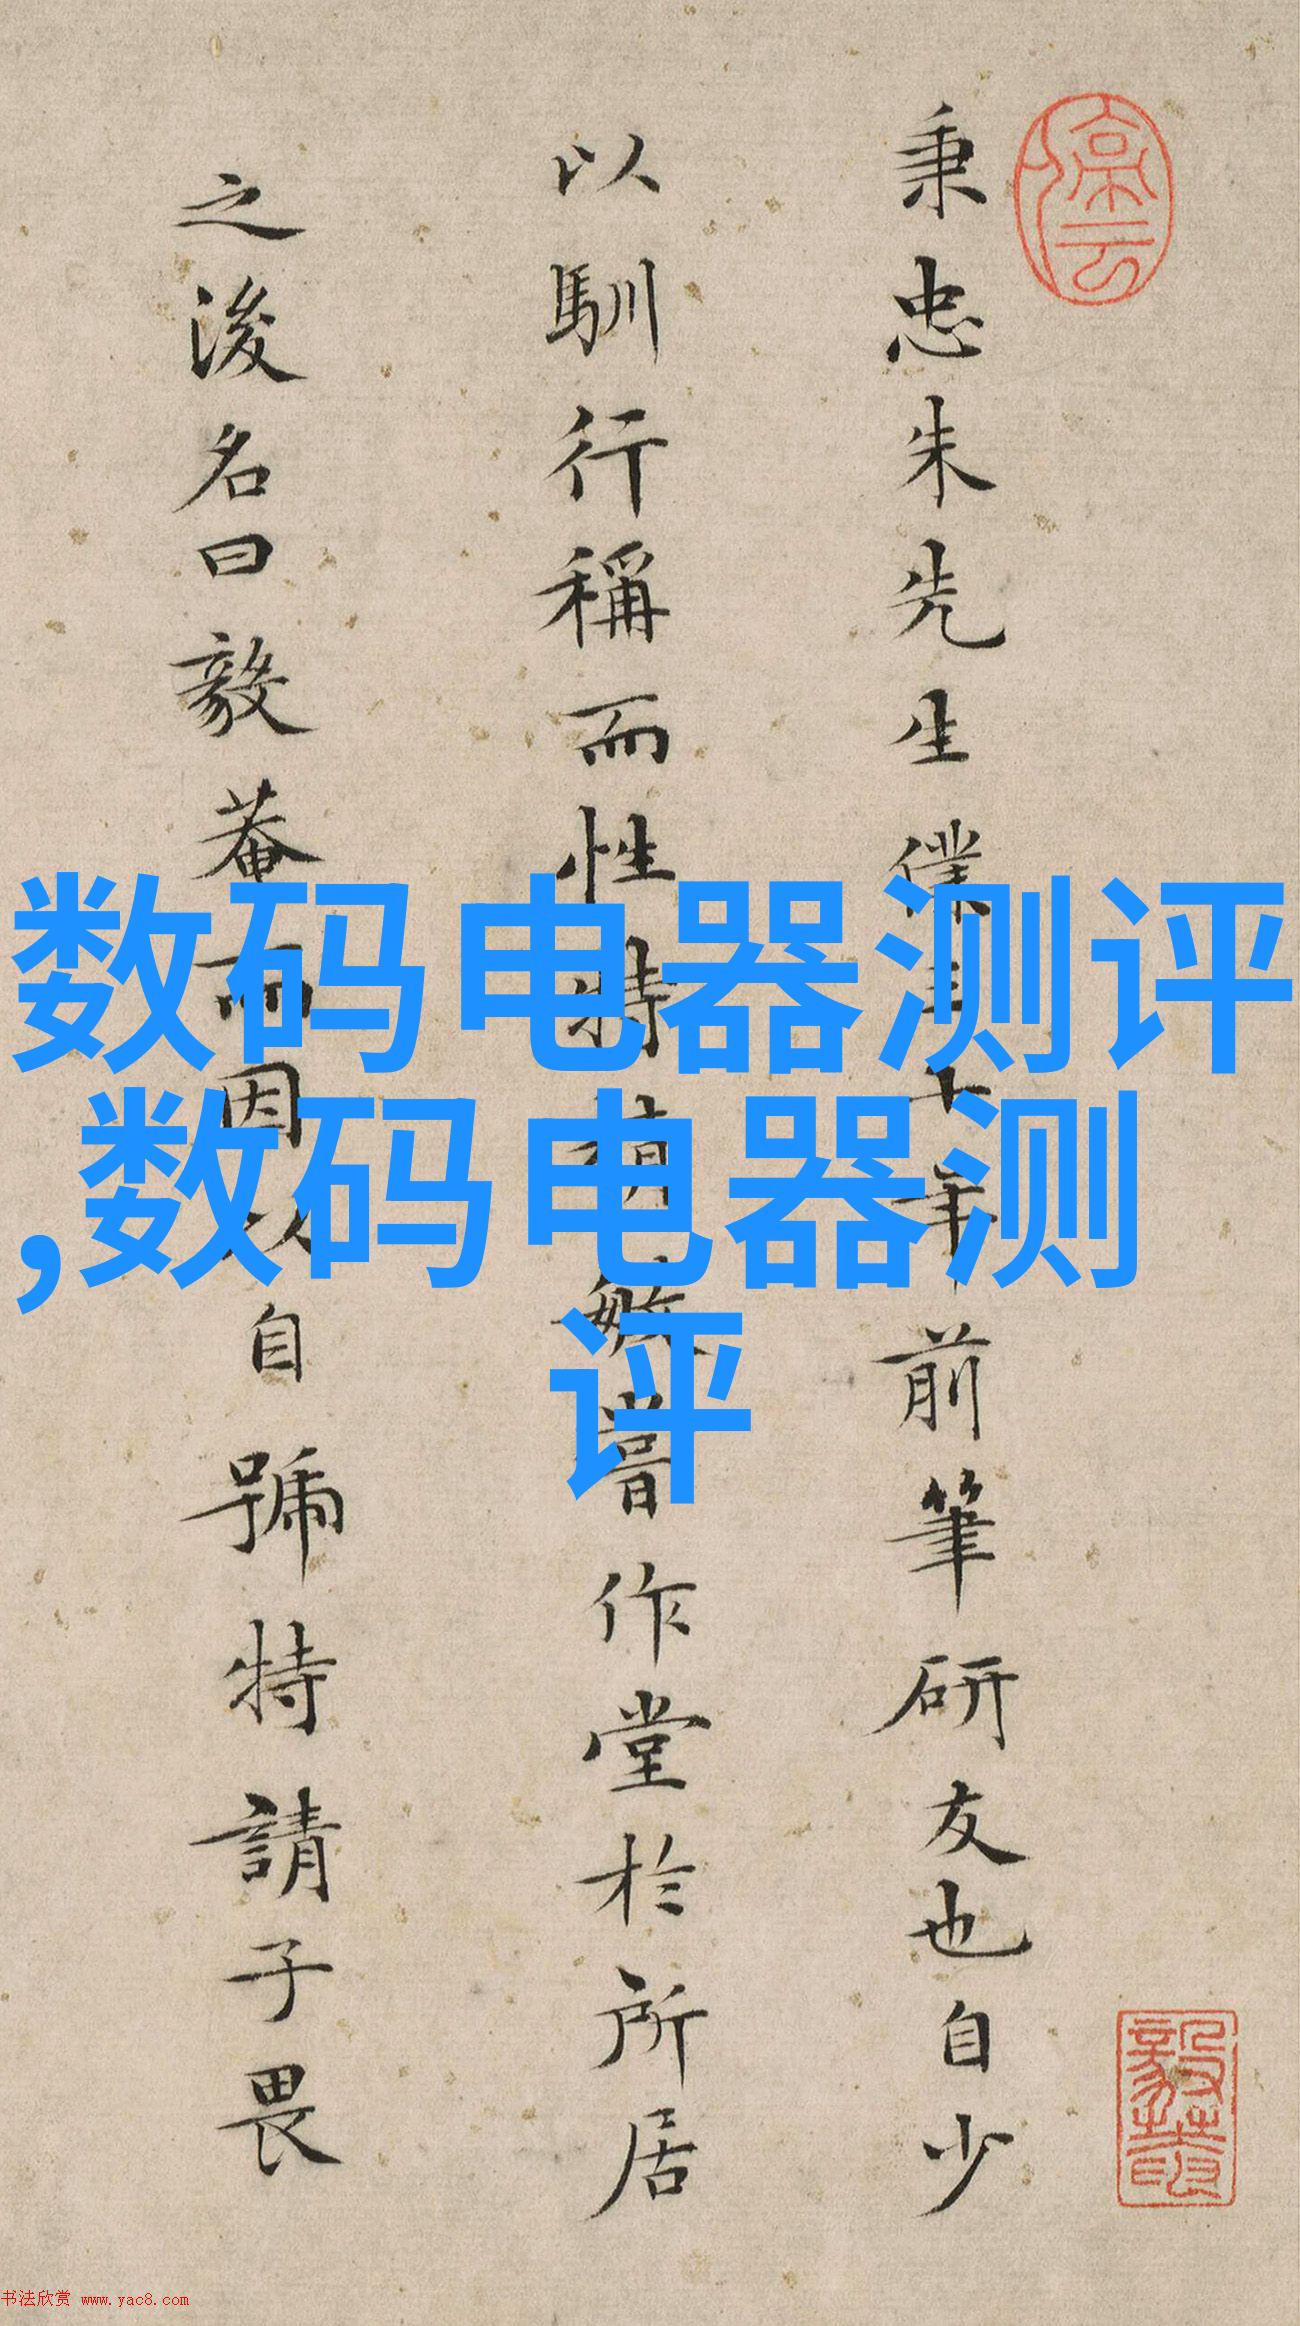 秉忠朱先生僕年前筆研友也自少
以馴行稱而性特敏嘗作堂於所居
之後名曰毅菴而因以自號特請子畏
数码电器测评
,数码电器测
评
书法欣赏 www.yac8.com